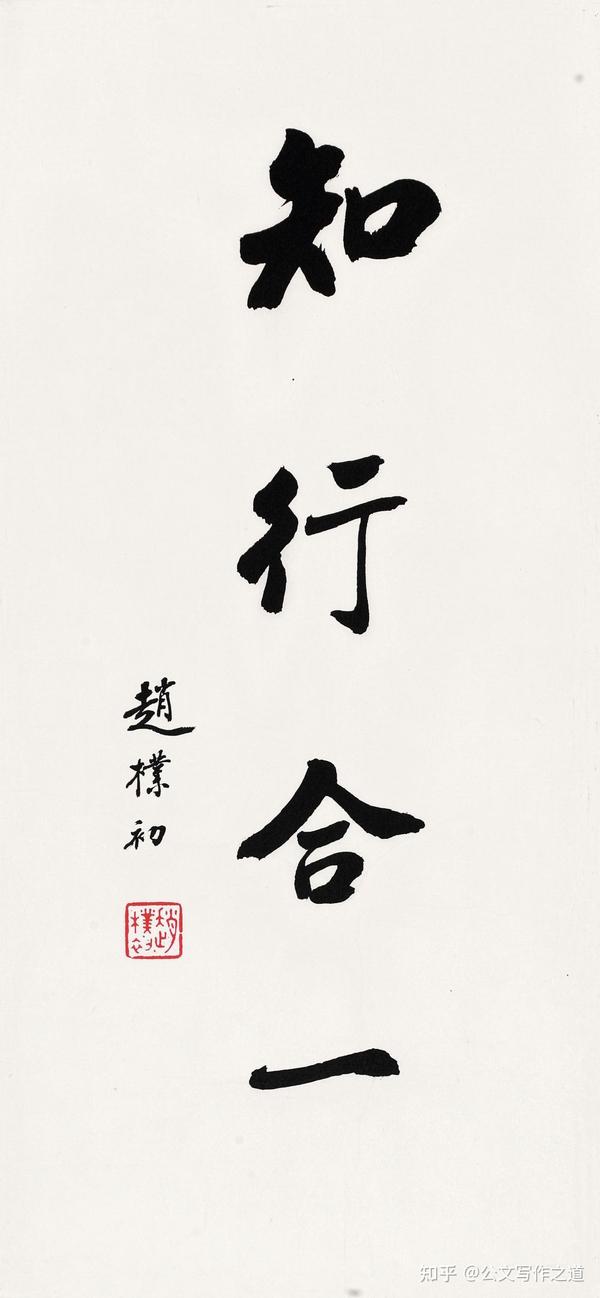 知行合一
趙樸初
趙樸初
知乎 @公文写作之道